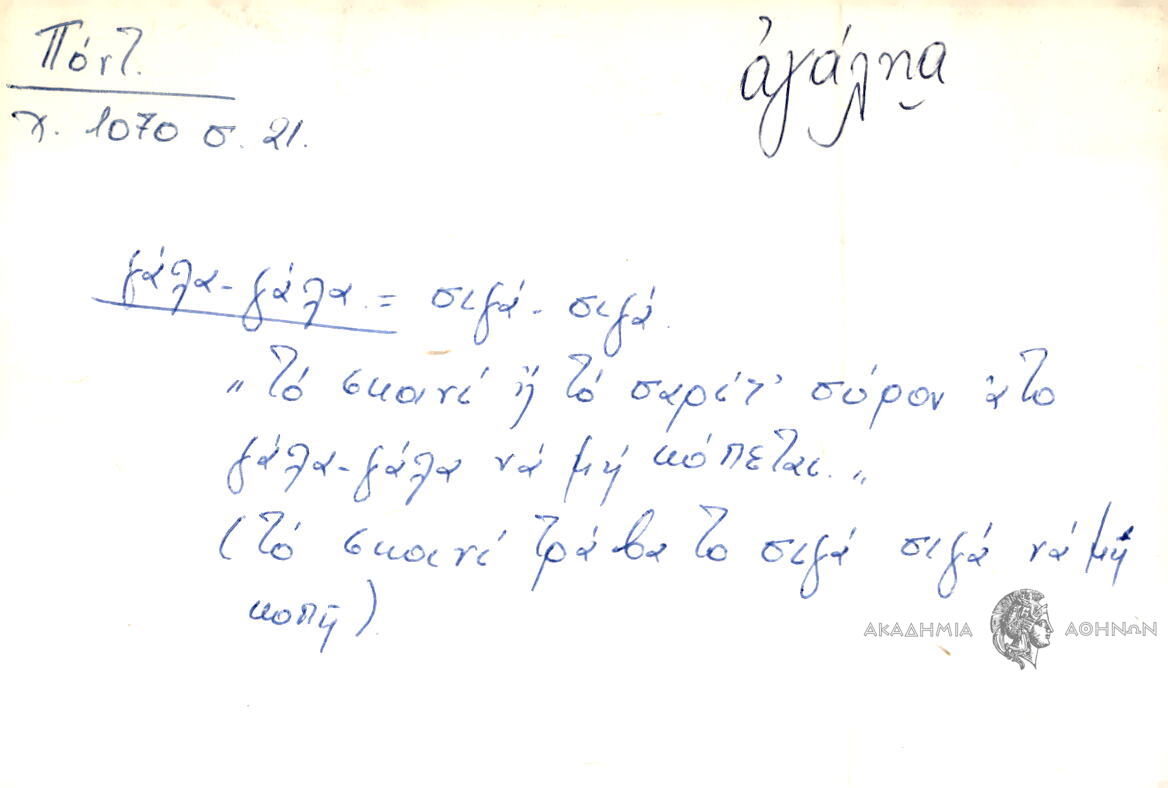 Πόντ.
ἀγάλη̮α
χ. 1070 σ. 21.
γάλα-γάλα = σιγά-σιγά.
„Τό σκοινί ἤ τό σαρίτ' σύρον ἀτο
γάλα-γάλα νά μή κόπεται.„
(Τό σκοινί τράβα το σιγά σιγά νά μή
κοπῇ)
ΑΚΑΔΗΜΙΑ ΑΘΗΝΩΝ